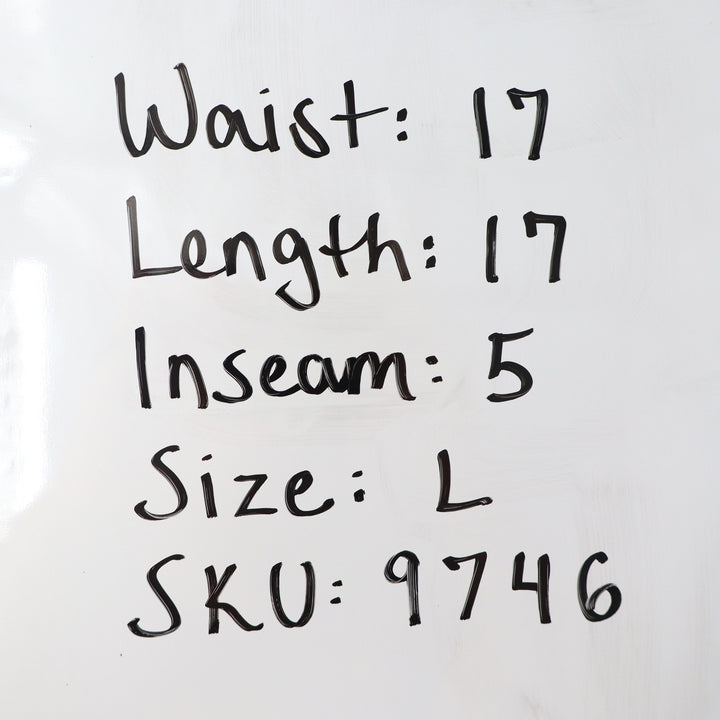 Waist: 17
Length: 17
Inseam: 5
Size: L
SKU: 9746